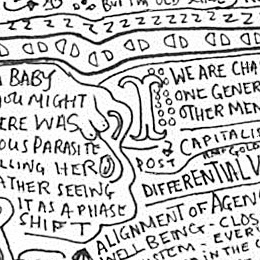 BUT I'M OLD
ZZZZZZZZZZZZ
A BABY
YOU MIGHT
ERE WAS
OUS PARASITE
LLING HER
ATHER SEEING
IT AS A PHASE
SHIFT
I
WE ARE CHA
ONE GENER
OTHER MEN
POST
CAPITALIS
DIFFERENTIAL V
ALIGNMENT OF AGEN
WELL BEING - CLOS
STEM - EVER
IN THE C